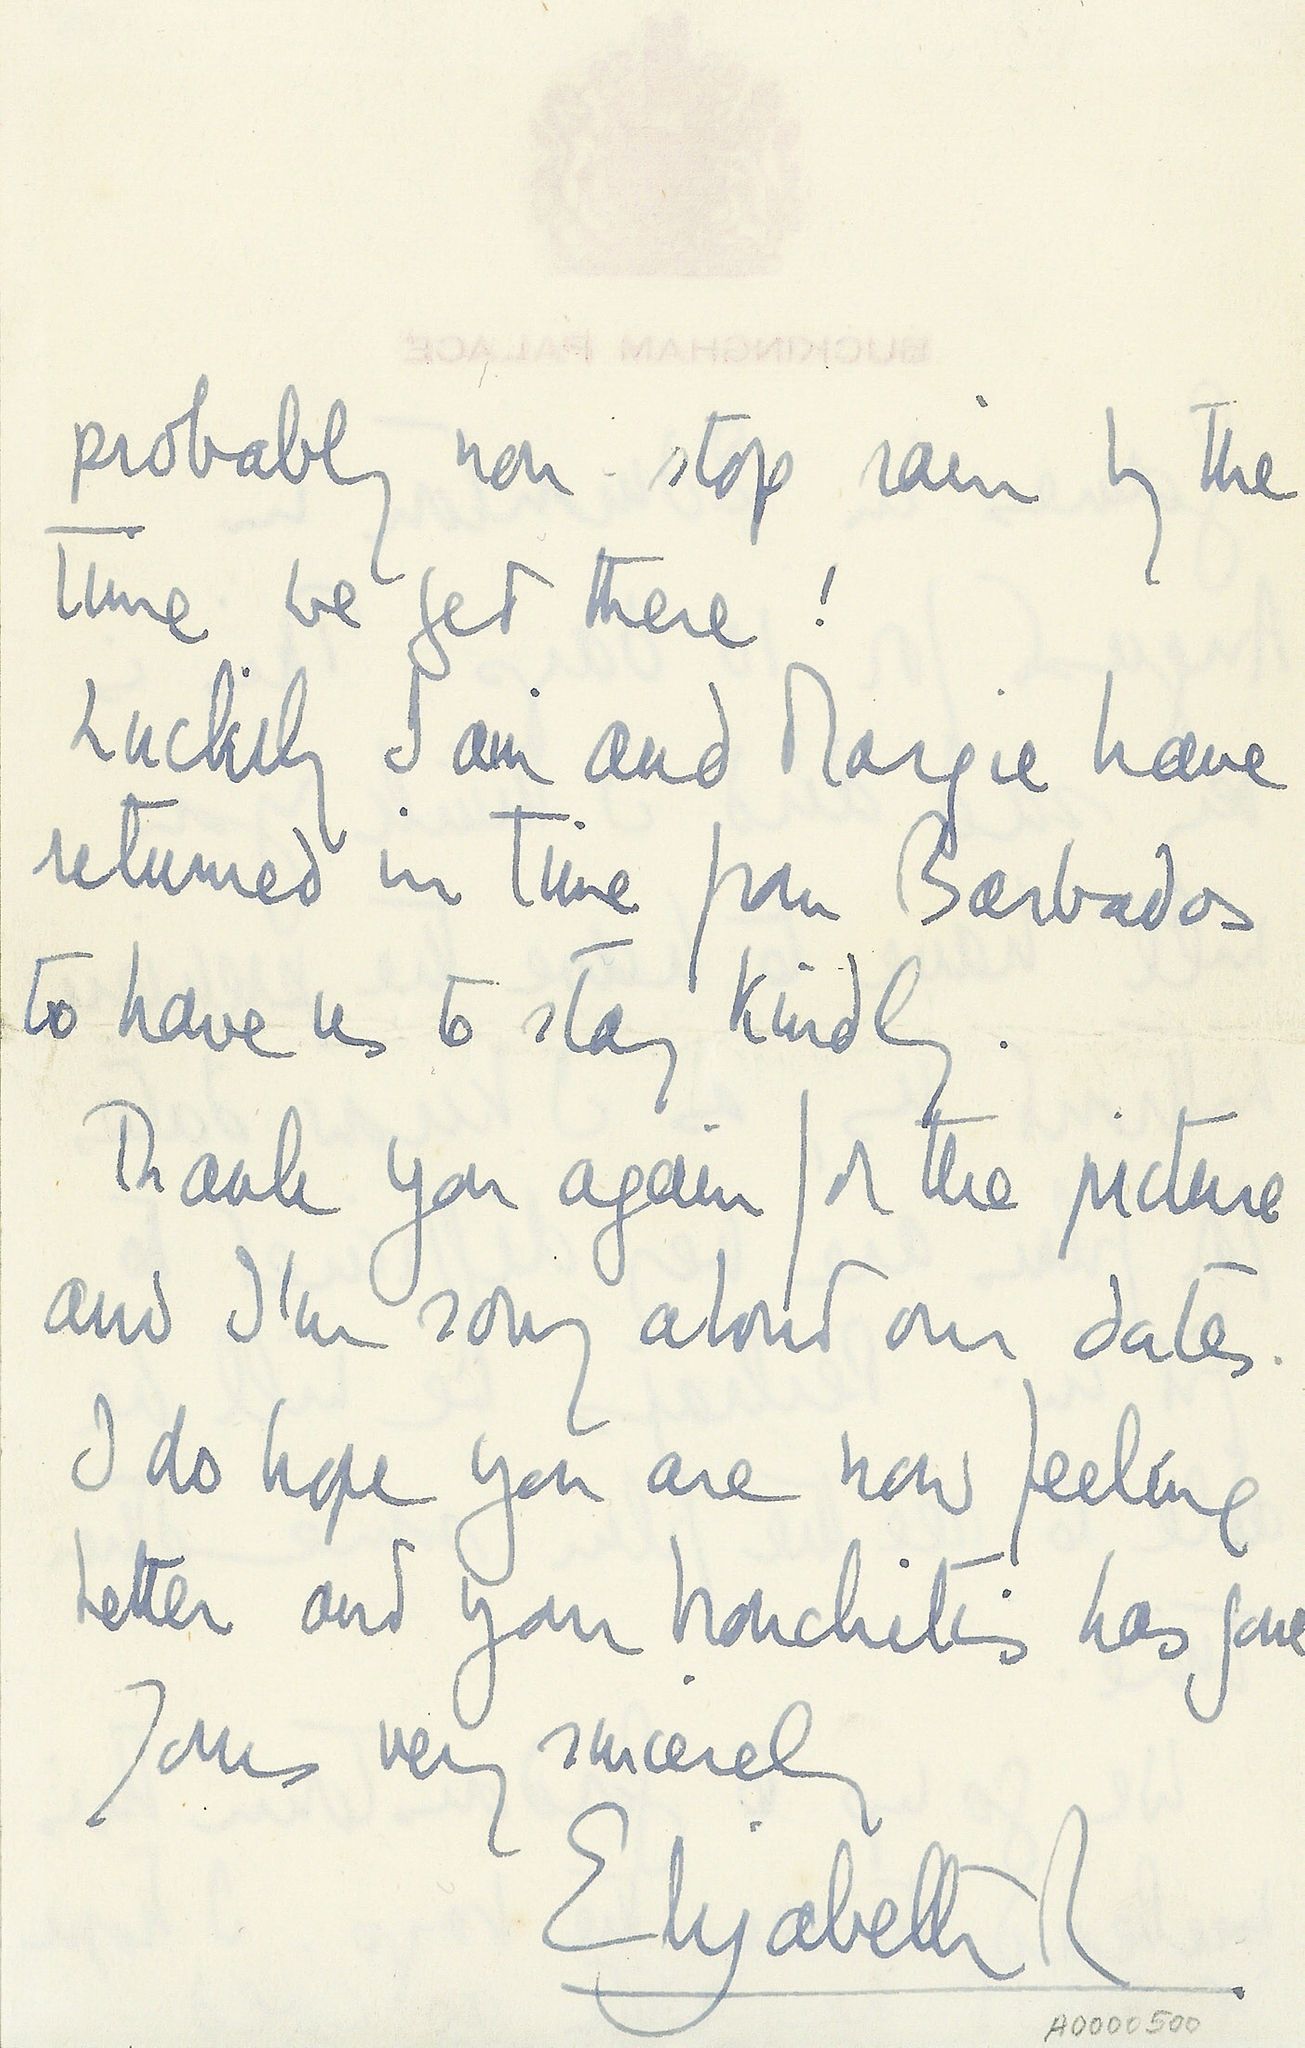 BUCKINGHAM PALACE
probably non-stop rain by the
time we get there!
Luckily Iain and Margie have
returned in time from Barbados
to have us to stay kindly.
Thank you again for the picture
and I'm sorry about our dates.
I do hope you are now feeling
better and your bronchitis has gone
Yours very sincerely
Elizabeth R
A0000500